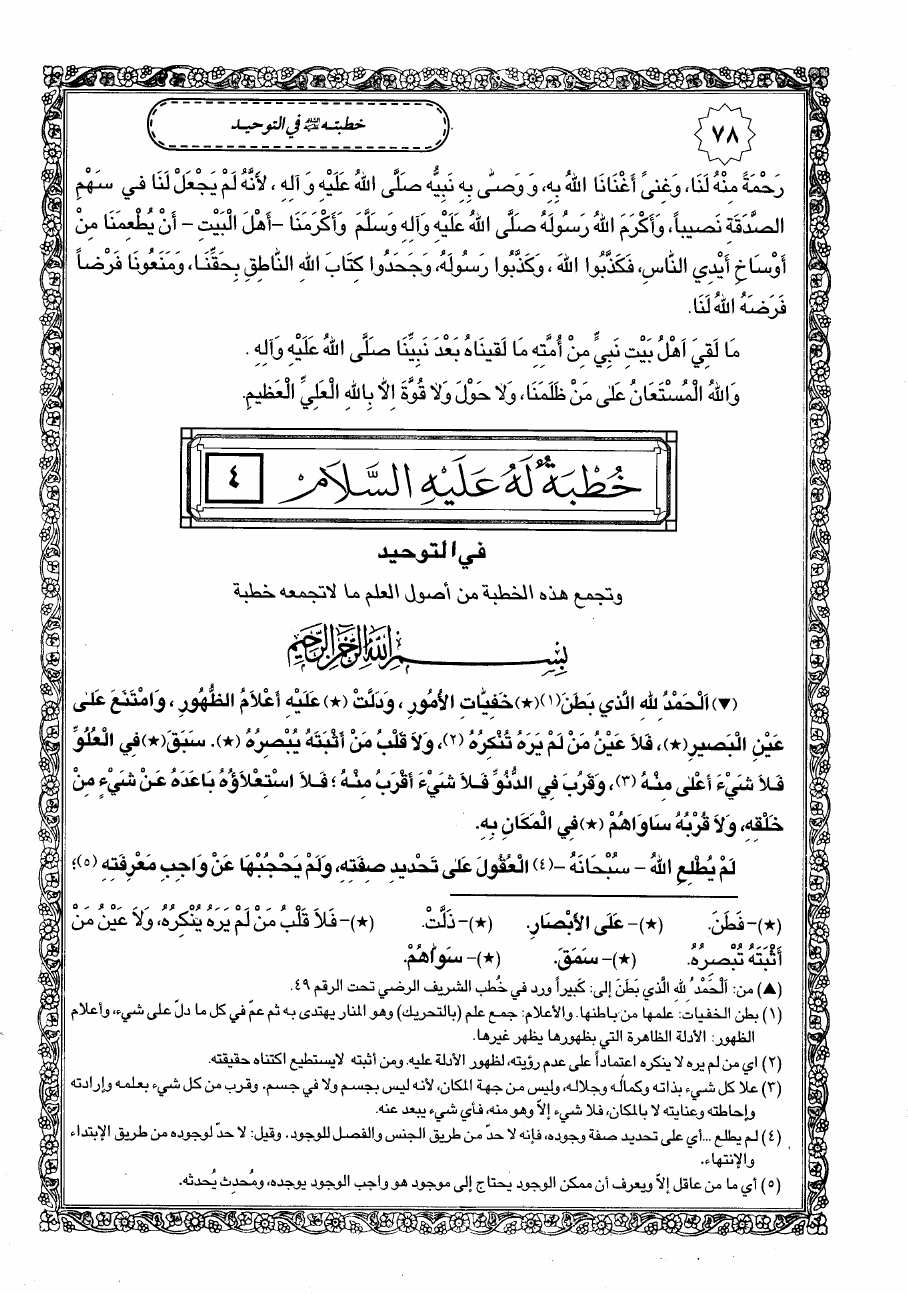 ٧٨
خطبته عليه السلام في التوحيد
رَحْمَةً مِنْهُ لَنَا، وَغِنىً أَغْنَانَا اللهُ بِهِ، وَ وَصىّٰ بِهِ نَبِيَّه صَلَّى اللهُ عَلَيْهِ وَ آلِهِ ، لأَنَّهُ لَمْ يَجْعَلْ لَنَا في سَهْمِ
الصَّدَقَةِ نَصيباً، وَأَكْرَمَ اللهُ رَسُولَهُ صَلَّى اللهُ عَلَيْهِ وَآلِهِ وَسَلَّمَ وَأَكْرَمَنَا -أَهْلَ الْبَيْتِ - أَنْ يُطْعِمَنَا مِنْ
أَوْسَاخِ أَيْدِي النَّاسِ، فَكَذَّبُوا اللهَ ، وَكَذَّبُوا رَسُولَهُ، وَجَحَدُوا كِتَابَ اللهِ النَّاطِقِ بِحَقِّنَا، وَمَنَعُونَا فَرْضاً
فَرَضَهُ اللهُ لَنَا.
مَا لَقِيَ اَهْلُ بَيْتِ نَبِيٍّ مِنْ أُمَّتِهِ مَا لَقينَاهُ بَعْدَ نَبِيِّنَا صَلَّى اللهُ عَلَيْهِ وَآلِهِ .
وَاللهُ الْمُسْتَعَانُ عَلىٰ مَنْ ظَلَمَنَا، وَلاَ حَوْلَ وَلاَ قُوَّةَ إِلاَّ بِاللهِ الْعَلِيِّ الْعَظيمِ.
خُطْبَةٌ لَهُ عَلَيْهِ السَّلاَم ٤
في التوحيد
وتجمع هذه الخطبة من أصول العلم ما لاتجمعه خطبة
بِسْمِ اللهِ الرَّحْمٰنِ الرَّحِيمِ
(▼) اَلْحَمْدُ للهِ الَّذي بَطَنَ(١)(★)خَفِيَّاتِ الأُمُورِ ، وَدَلَّتْ (★) عَلَيْهِ أَعْلاَمُ الظُّهُورِ ، وَامْتَنَعَ عَلىٰ
عَيْنِ الْبَصيرِ(★)، فَلاَ عَيْنُ مَنْ لَمْ يَرَهُ تُنْكِرُهُ (٢)، وَلاَ قَلْبُ مَنْ أَثْبَتَهُ يُبْصِرُهُ (★). سَبَقَ(★)فِي الْعُلُوِّ
فَلاَ شَيْءَ أَعْلىٰ مِنْهُ (٣)، وَقَرُبَ فِي الدُّنُوِّ فَلاَ شَيْءَ أَقْرَبُ مِنْهُ ؛ فَلاَ اسْتِعْلاَؤُهُ بَاعَدَهُ عَنْ شَيْءٍ مِنْ
خَلْقِهِ، وَلاَ قُرْبُهُ سَاوَاهُمْ (★)فِي الْمَكَانِ بِهِ.
لَمْ يُطْلِعِ اللهُ - سُبْحَانَهُ -(٤) الْعُقُولَ عَلىٰ تَحْديدِ صِفَتِهِ، وَلَمْ يَحْجُبْهَا عَنْ وَاجِبِ مَعْرِفَتِهِ (٥)؛
(★)- فَطَنَ. (★)- عَلَى الأَبْصَارِ. (★)- ذَلَّتْ. (★)- فَلاَ قَلْبُ مَنْ لَمْ يَرَهُ يُنْكِرُهُ، وَلاَ عَيْنُ مَنْ
أَثْبَتَهُ تُبْصِرُهُ. (★)- سَمَقَ. (★)- سَوَاهُمْ.
(▲) من: اَلْحَمْدُ للهِ الَّذي بَطَنَ إلى: كَبيراً ورد في خُطب الشريف الرضي تحت الرقم ٤٩.
(١) بطن الخفيات: علمها من باطنها. والأعلام: جمع علم (بالتحريك) وهو المنار يهتدى به ثم عمّ في كل ما دلّ على شيء، وأعلام
الظهور: الأدلة الظاهرة التي بظهورها يظهر غيرها.
(٢) اي من لم يره لا ينكره اعتماداً على عدم رؤيته، لظهور الأدلة عليه. ومن أثبته لايستطيع اكتناه حقيقته.
(٣) علا كل شيء بذاته وكماله وجلاله، وليس من جهة المكان، لأنه ليس بجسم ولا في جسم، وقرب من كل شيء بعلمه وإرادته
وإحاطته وعنايته لا بالمكان، فلا شيء إلاّ وهو منه، فأي شيء يبعد عنه.
(٤) لم يطلع ...أي على تحديد صفة وجوده، فإنه لا حدّ من طريق الجنس والفصل للوجود. وقيل: لا حدّ لوجوده من طريق الإبتداء
والإنتهاء.
(٥) أي ما من عاقل إلاّ ويعرف أن ممكن الوجود يحتاج إلى موجود هو واجب الوجود يوجده، ومُحدِث يُحدثه.